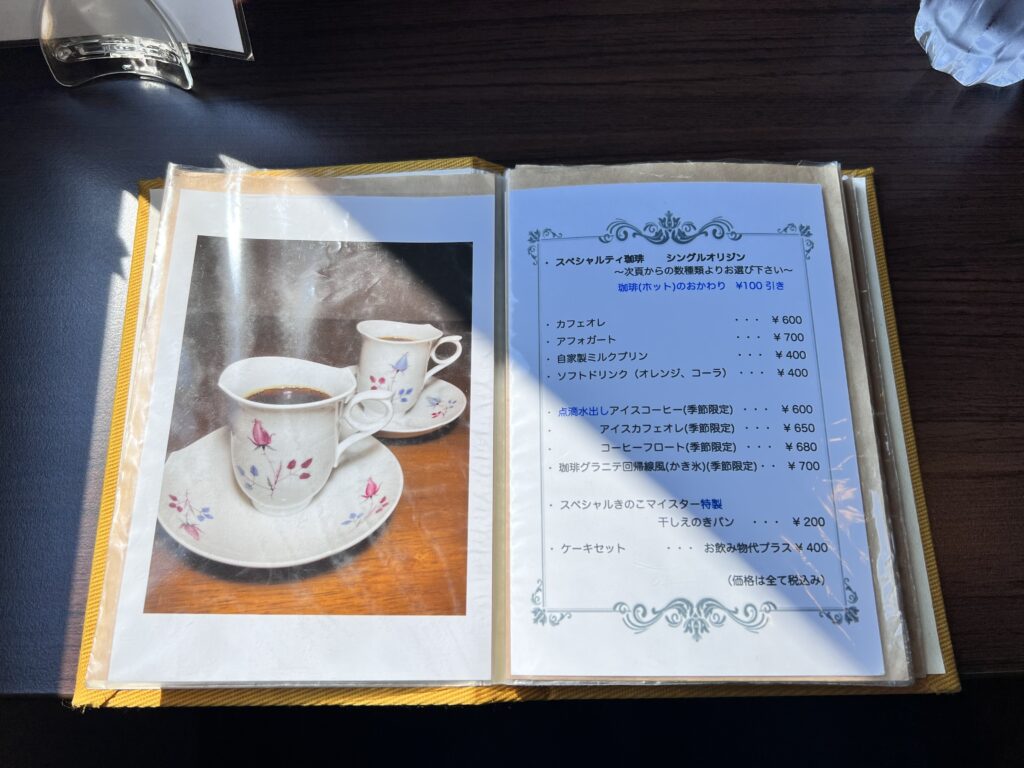 ・ スペシャルティ珈琲　　シングルオリジン
～次頁からの数種類よりお選び下さい～
珈琲(ホット)のおかわり　¥100 引き
・ カフェオレ ・・・ ¥ 600
・ アフォガート ・・・ ¥ 700
・ 自家製ミルクプリン ・・・ ¥ 400
・ ソフトドリンク（オレンジ、コーラ） ・・・ ¥ 400
・ 点滴水出しアイスコーヒー(季節限定) ・・・ ¥ 600
・ アイスカフェオレ(季節限定) ・・・ ¥ 650
・ コーヒーフロート(季節限定) ・・・ ¥ 680
・ 珈琲グラニテ回帰線風(かき氷)(季節限定)・・ ¥ 700
・ スペシャルきのこマイスター特製
干しえのきパン ・・・ ¥ 200
・ ケーキセット ・・・ お飲み物代プラス ¥ 400
（価格は全て税込み）